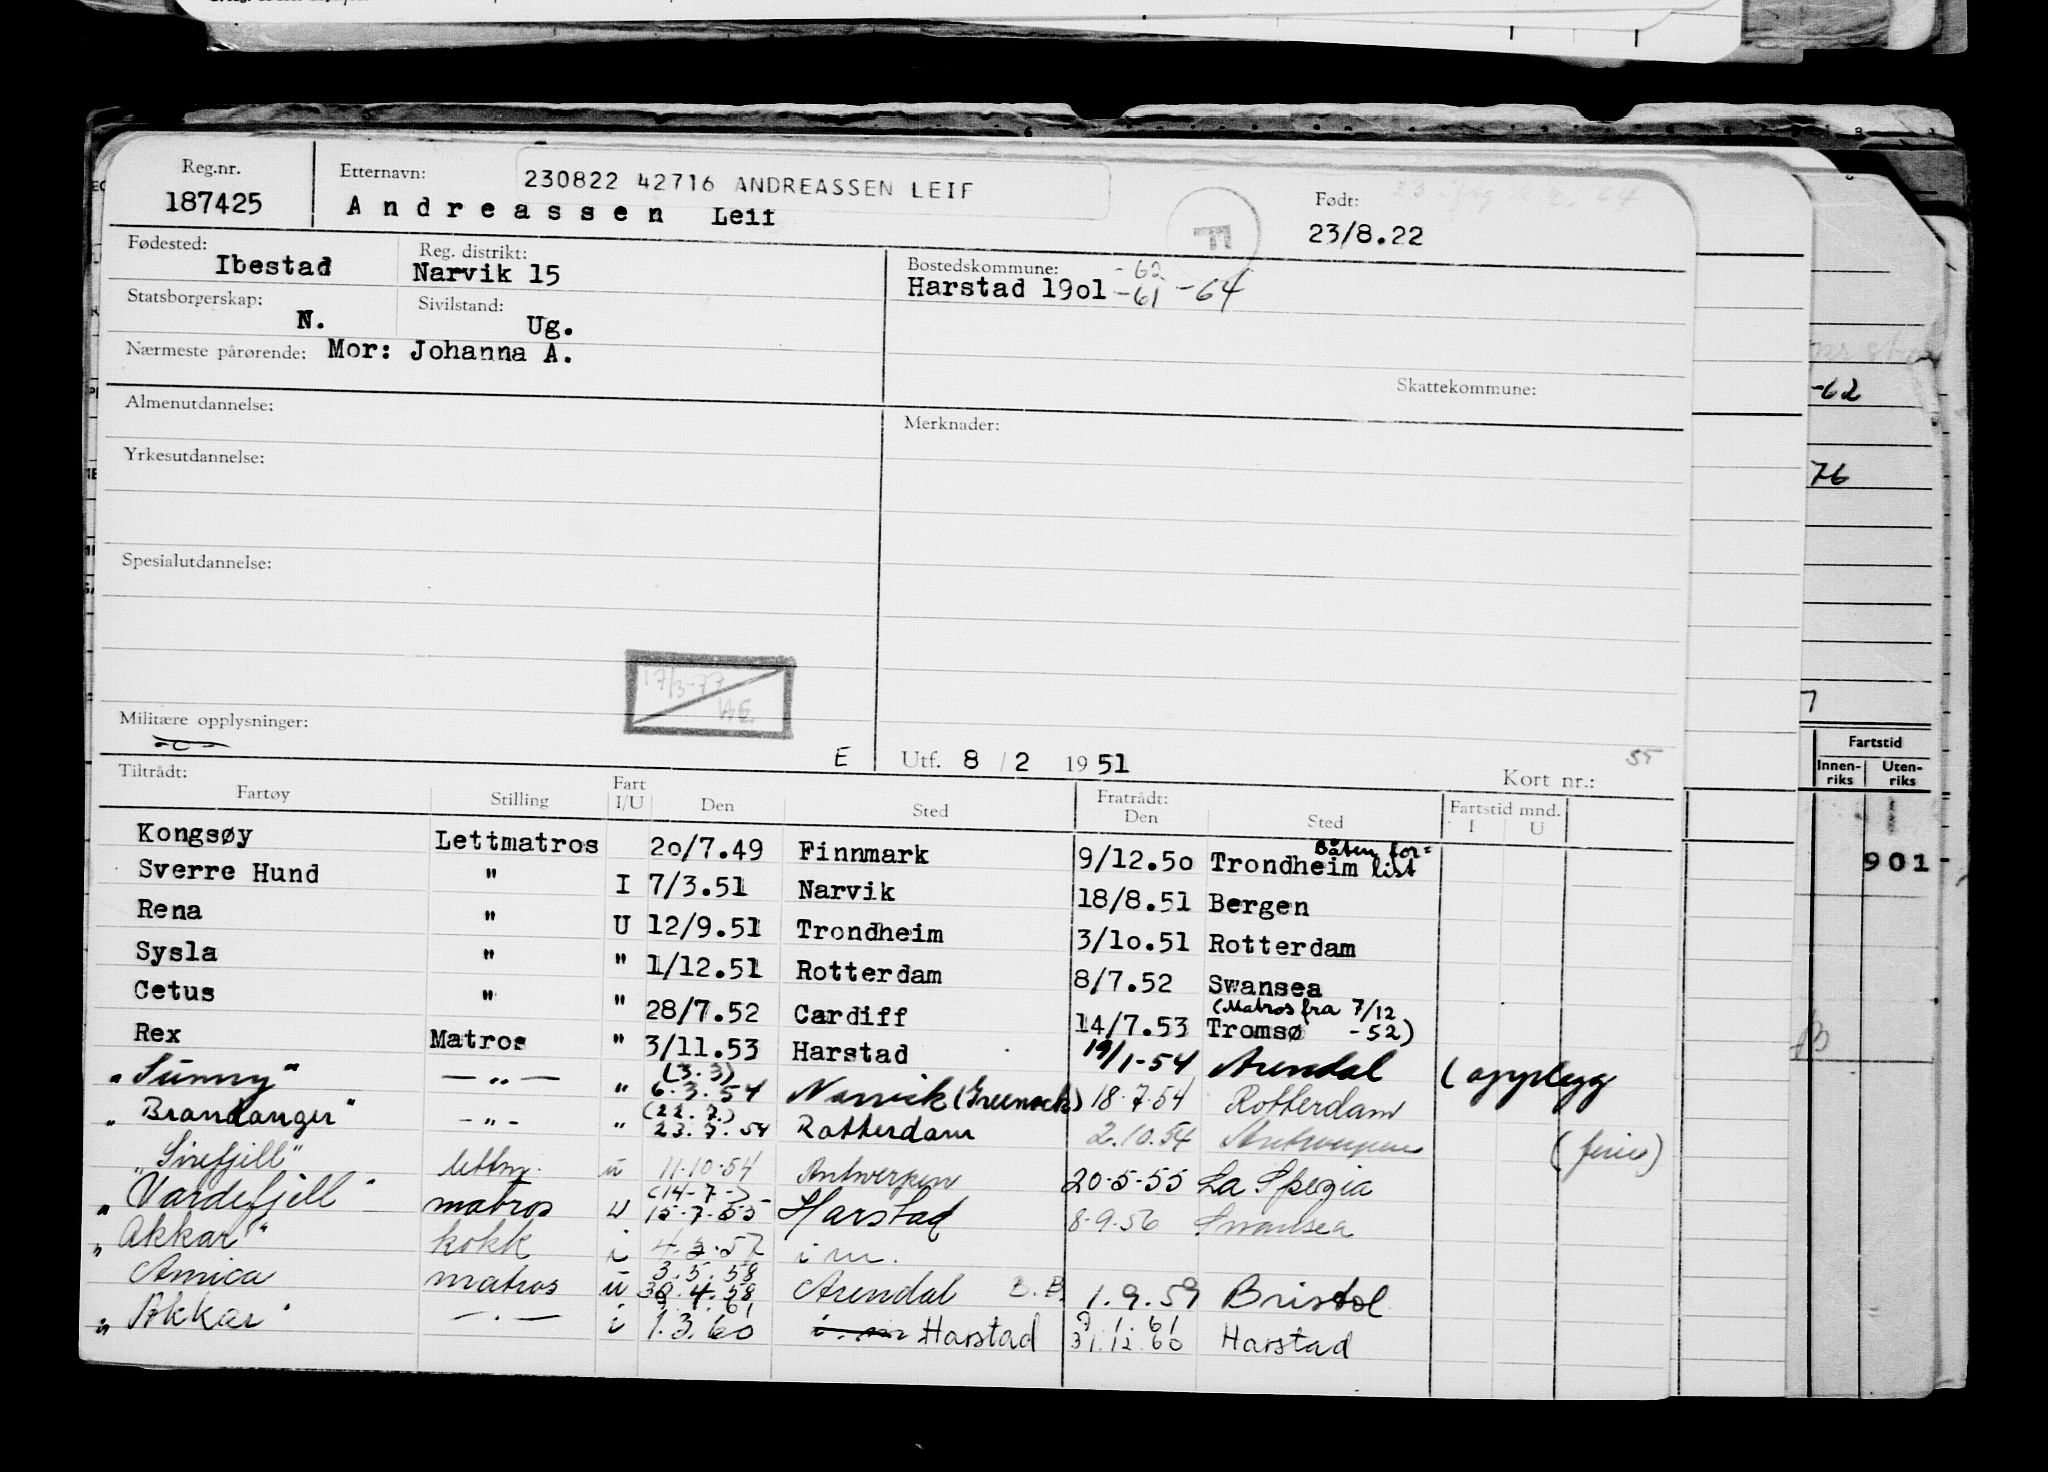 Reg.nr.
187425
Etternavn:
230822 42716 ANDREASSEN LEIF
Andreassen Leif
Født:
23/8.22
Fødested:
Ibestad
Reg. distrikt:
Narvik 15
Bostedskommune:
-62
Harstad 19o1 -61 -64
Statsborgerskap:
N.
Sivilstand:
Ug.
Nærmeste pårørende: Mor: Johanna A.
Skattekommune:
-62
Almenutdannelse:
Merknader:
Yrkesutdannelse:
76
Spesialutdannelse:
17/3-77
Militære opplysninger:
E Utf. 8 / 2 19 51
Kort nr.:
Tiltrådt:
Fartøy Stilling Fart I/U Den Sted Fratrådt: Den Sted Fartstid mnd. I U
Fartstid
Innen-riks Uten-riks
Kongsøy Lettmatros 2o/7.49 Finnmark 9/12.5o Trondheim Båten for=list
901
Sverre Hund " I 7/3.51 Narvik 18/8.51 Bergen
Rena " U 12/9.51 Trondheim 3/1o.51 Rotterdam
Sysla " " 1/12.51 Rotterdam 8/7.52 Swansea
Cetus " " 28/7.52 Cardiff 14/7.53 Tromsø (Matros fra 7/12 -52)
Rex Matros " 3/11.53 Harstad 19/1-54 Arendal (opplegg
"Sunny" — " — " (3.3) 6.3.54 Narvik (Greenock) 18.7.54 Rotterdam
"Brandanger" - " - " (22.7.) 23.7.54 Rotterdam 2.10.54 Antwerpen (ferie)
"Sirefjell" lettm. u 11.10.54 Antwerpen 20-5-55 La Spezia
"Vardefjell" matros u (14-7-) 15-7-55 Harstad 8.9.56 Swansea
"Akkar" kokk i 4.3.57 i m.
Amica matros u 3.5.58 30.4.58 Arendal B.B. 1.9.59 Bristol
"Akkar" — . — i 1.3.60 i. m Harstad 31.12.60 Harstad